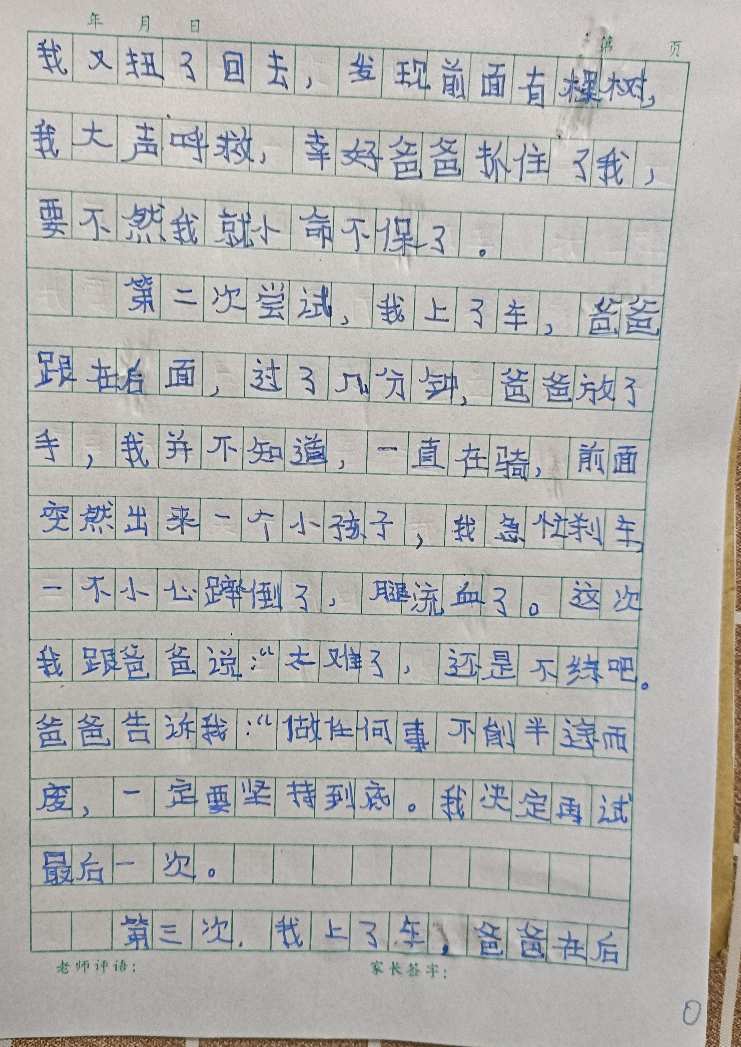 年 月 日
第 页
我又扭了回去，发现前面有棵树，
我大声呼救，幸好爸爸抓住了我，
要不然我就小命不保了。
第二次尝试，我上了车，爸爸
跟在后面，过了几分钟，爸爸放了
手，我并不知道，一直在骑，前面
突然出来一个小孩子，我急忙刹车
一不小心蹿倒了，腿流血了。这次
我跟爸爸说：“太难了，还是不练吧。
爸爸告诉我：“做任何事不能半途而
废，一定要坚持到底。我决定再试
最后一次。
第三次，我上了车，爸爸在后
老师评语：
家长签字：
0